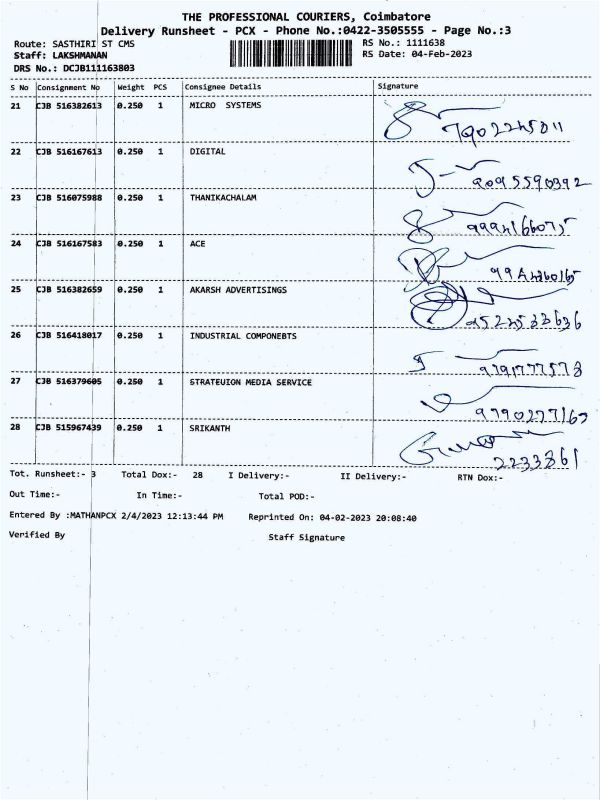 THE PROFESSIONAL COURIERS, Coimbatore
Delivery Runsheet - PCX - Phone No.:0422-3505555 - Page No.:3
Route: SASTHIRI ST CMS RS No.: 1111638
Staff: LAKSHMANAN RS Date: 04-Feb-2023
DRS No.: DCJB111163803
S No Consignment No Weight PCS Consignee Details Signature
21 CJB 516382613 0.250 1 MICRO SYSTEMS
7902245011
22 CJB 516167613 0.250 1 DIGITAL
9095590392
23 CJB 516075988 0.250 1 THANIKACHALAM
24 CJB 516167583 0.250 1 ACE
25 CJB 516382659 0.250 1 AKARSH ADVERTISINGS
26 CJB 516418017 0.250 1 INDUSTRIAL COMPONEBTS
9791777573
27 CJB 516379605 0.250 1 STRATEUION MEDIA SERVICE
9790277167
28 CJB 515967439 0.250 1 SRIKANTH
2233361
Tot. Runsheet:- 3 Total Dox:- 28 I Delivery:- II Delivery:- RTN Dox:-
Out Time:- In Time:- Total POD:-
Entered By :MATHANPCX 2/4/2023 12:13:44 PM Reprinted On: 04-02-2023 20:08:40
Verified By Staff Signature